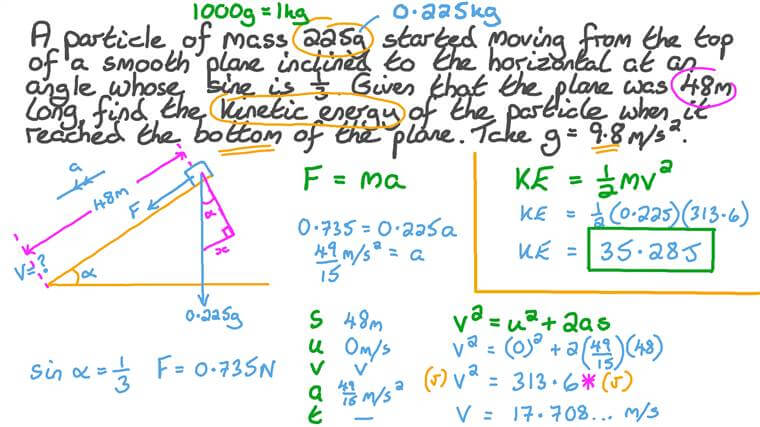 1000g = 1kg
0.225kg
A particle of mass 225g started moving from the top
of a smooth plane inclined to the horizontal at an
angle whose sine is 1/3. Given that the plane was 48m
long, find the kinetic energy of the particle when it
reached the bottom of the plane. Take g = 9.8 m/s².
a
48m
F
α
x
V=?
α
0.225g
sin α = 1/3 F = 0.735N
F = ma
0.735 = 0.225a
49/15 m/s² = a
s 48m
u 0m/s
v v
a 49/15 m/s²
t —
KE = ½mv²
KE = ½(0.225)(313.6)
KE = 35.28J
v² = u² + 2as
v² = (0)² + 2(49/15)(48)
(√) v² = 313.6 * (√)
v = 17.708... m/s